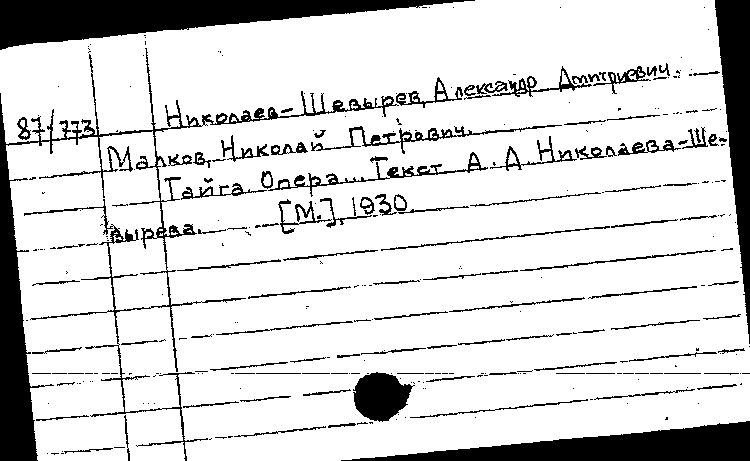 87/773 Николаев-Шевырев, Александр Дмитриевич.
Малков, Николай Петрович.
Тайга. Опера... Текст А. А. Николаева-Ше-
вырева. [М.], 1930.